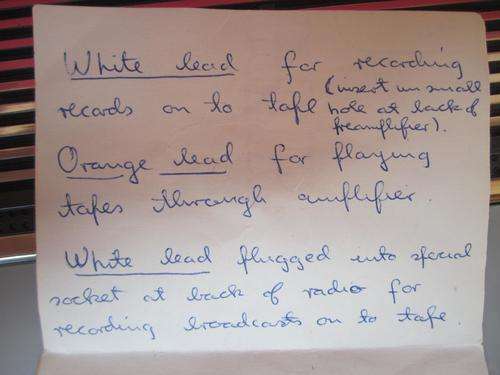 White lead for recording
records on to tape (insert in small
hole at back of
preamplifier).
Orange lead for playing
tapes through amplifier.
White lead plugged into special
socket at back of radio for
recording broadcasts on to tape.